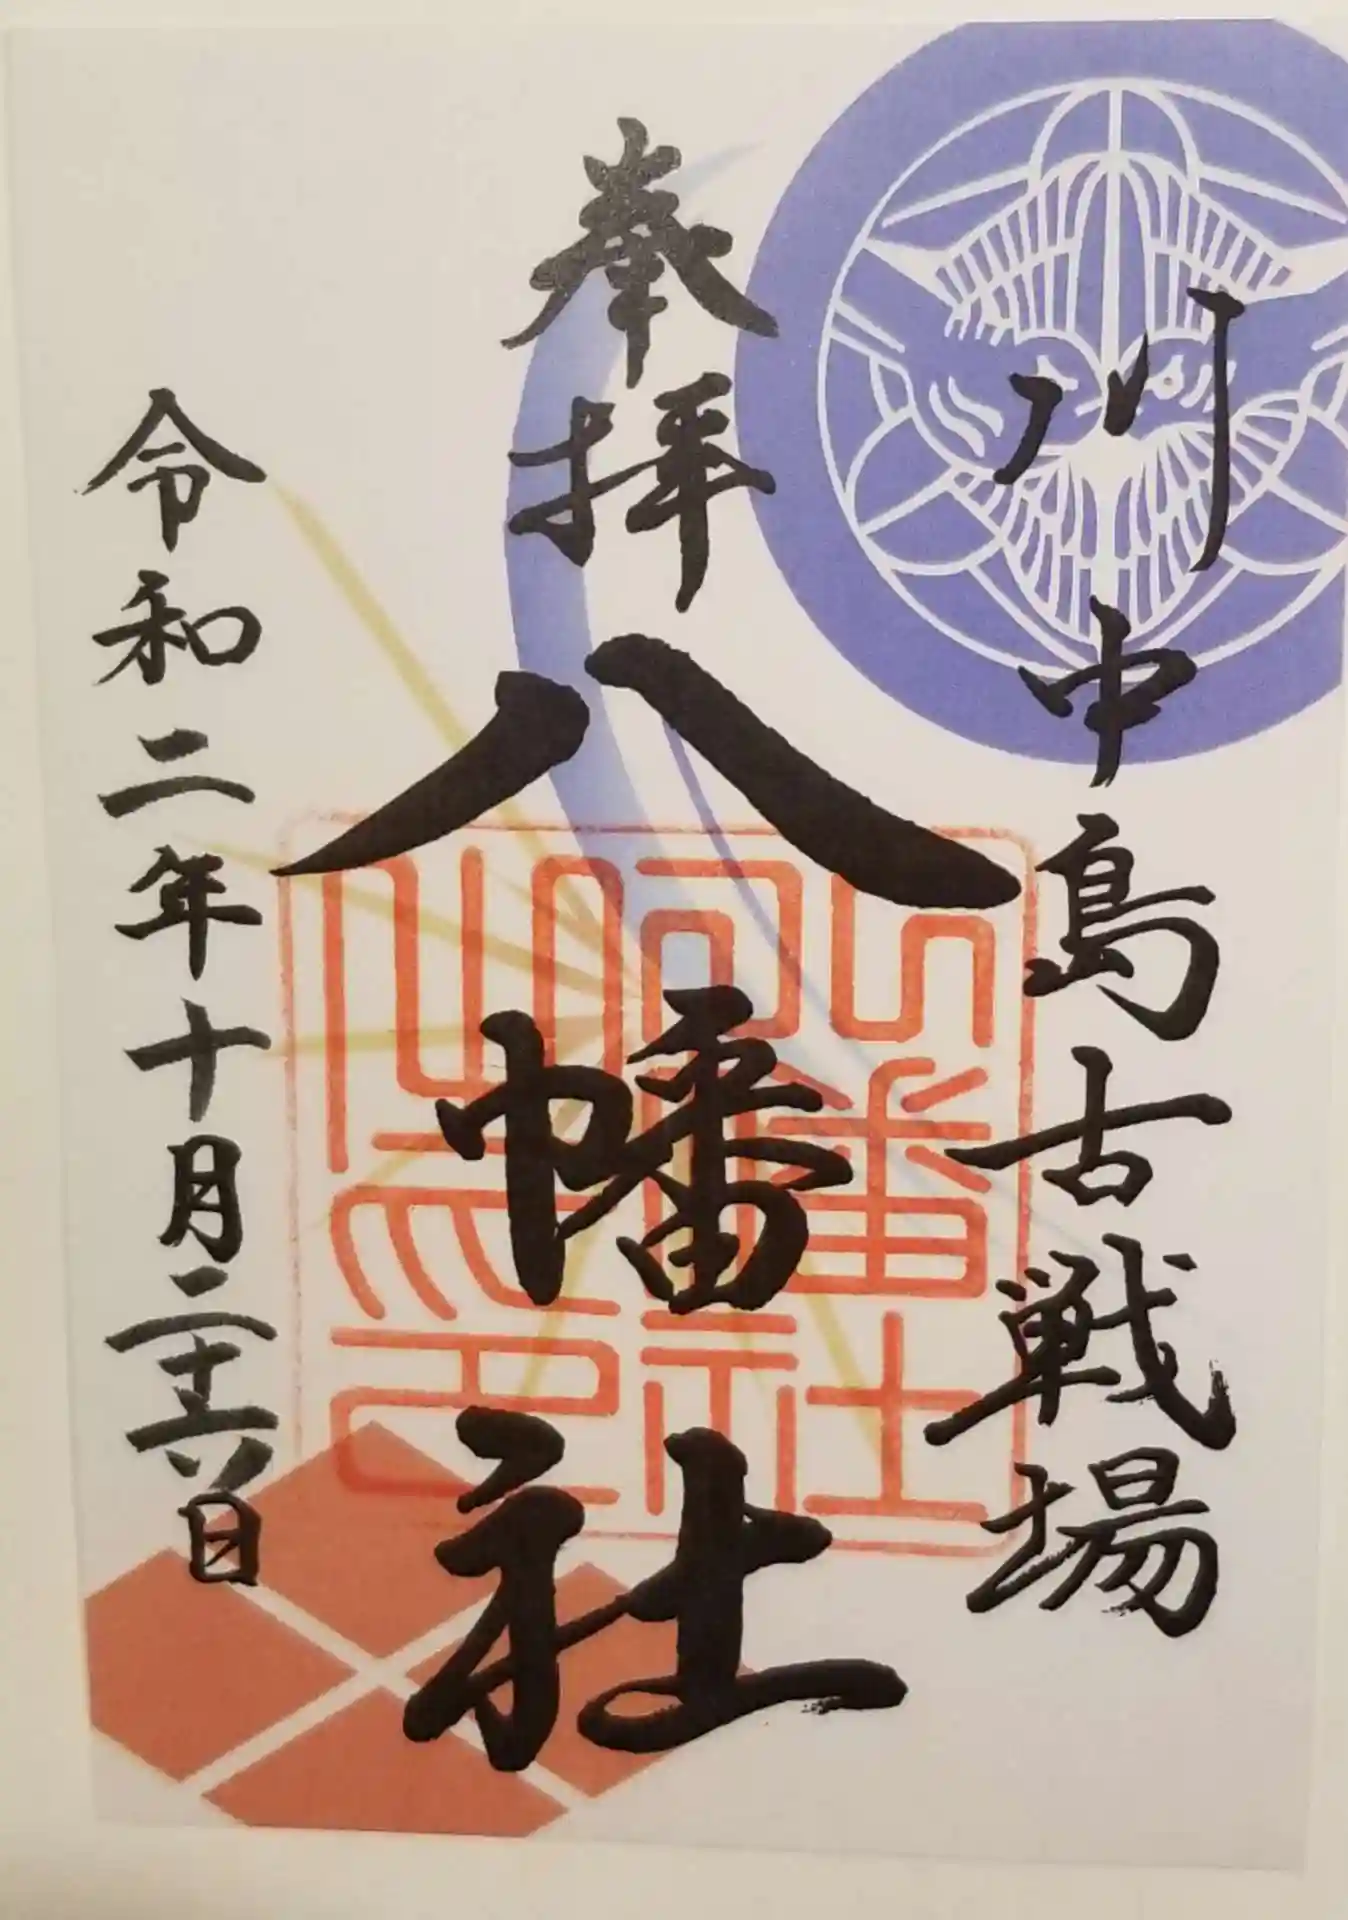 川中島古戦場
奉拝
八幡社
令和二年十月二十六日